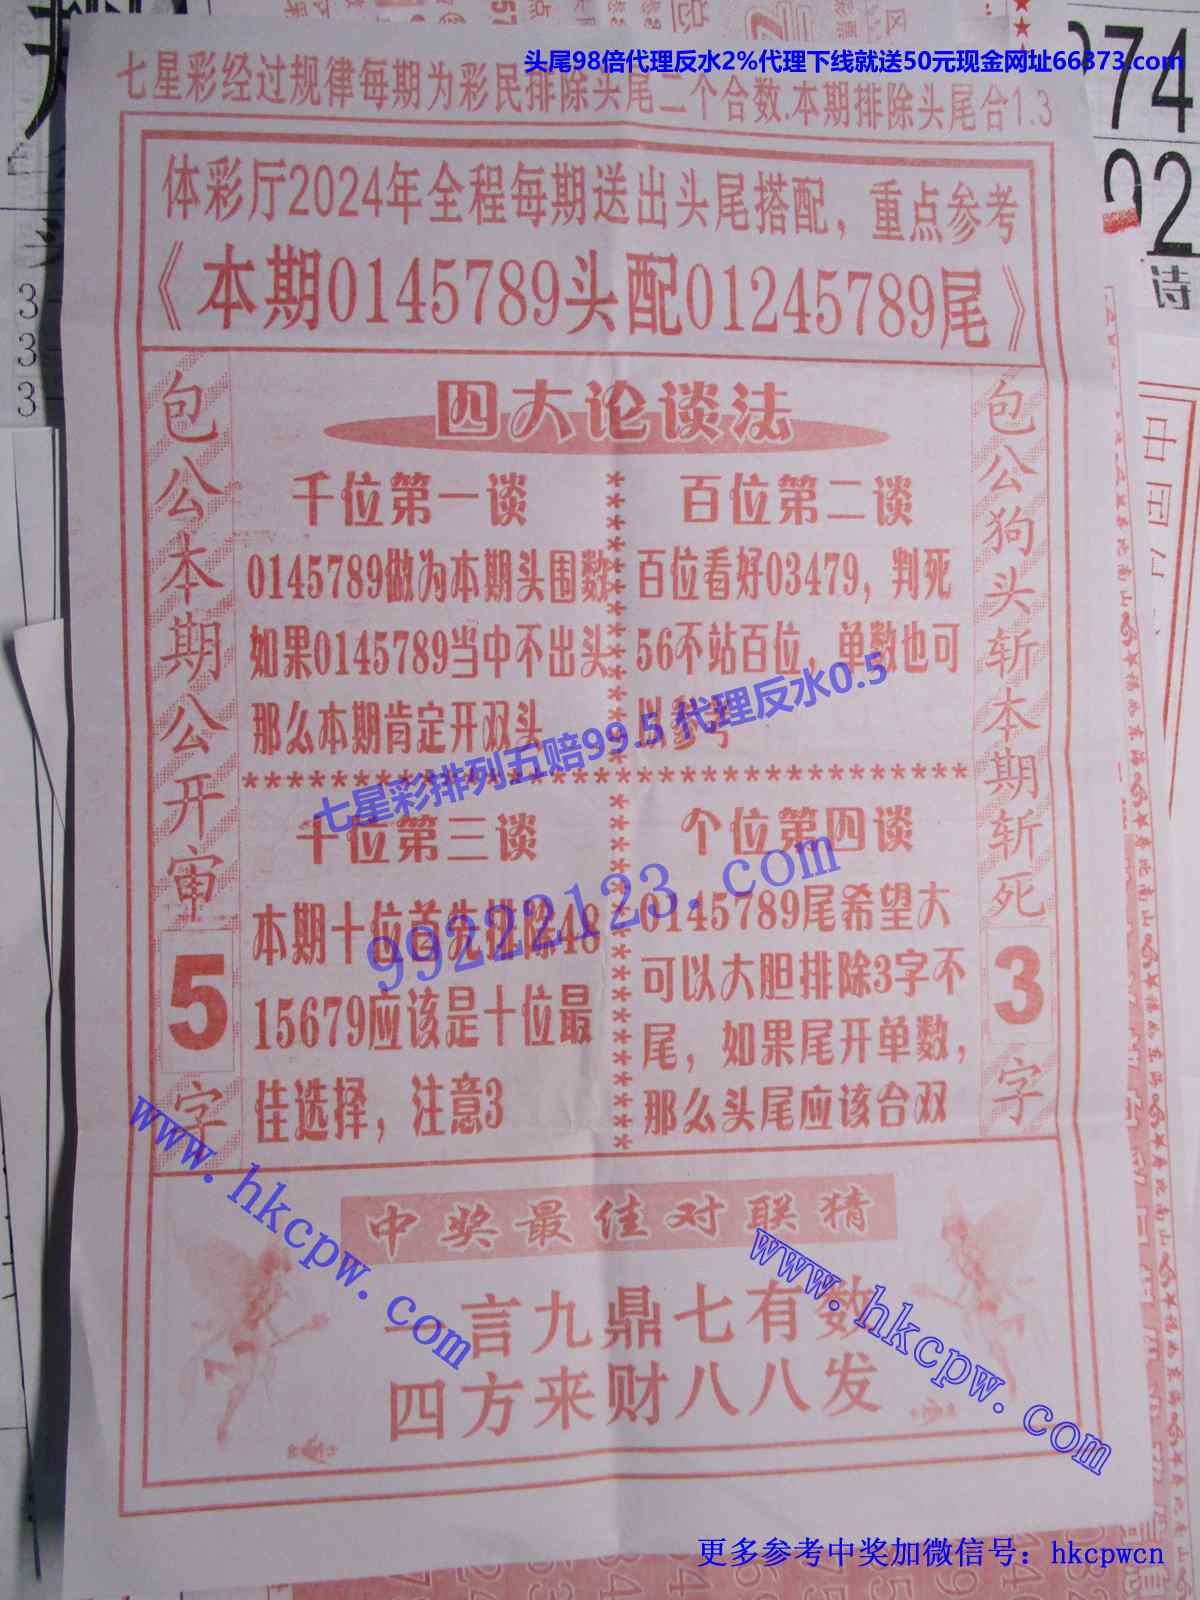 头尾98倍代理反水2%代理下线就送50元现金网址66373.com
七星彩经过规律每期为彩民排除头尾二个合数.本期排除头尾合1.3
体彩厅2024年全程每期送出头尾搭配，重点参考
《本期0145789头配01245789尾》
包公本期公开审5字
四大论谈法
千位第一谈
0145789做为本期头围数
如果0145789当中不出头
那么本期肯定开双头
百位第二谈
百位看好03479，判死
56不站百位，单数也可
以参考
************************************
七星彩排列五赔99.5 代理反水0.5
99222123.com
十位第三谈
本期十位首先排除48
15679应该是十位最
佳选择，注意3
个位第四谈
0145789尾希望大
可以大胆排除3字不
尾，如果尾开单数，
那么头尾应该合双
包公狗头斩本期斩死3字
www.hkcpw.com
www.hkcpw.com
中奖最佳对联猜
一言九鼎七有数
四方来财八八发
更多参考中奖加微信号：hkcpwcn
074
02
诗
3
3
3